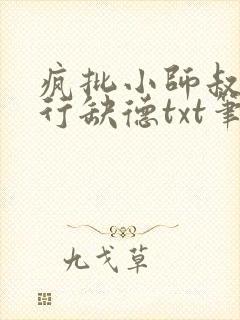 疯批小师叔
行缺德txt笔
九戈草